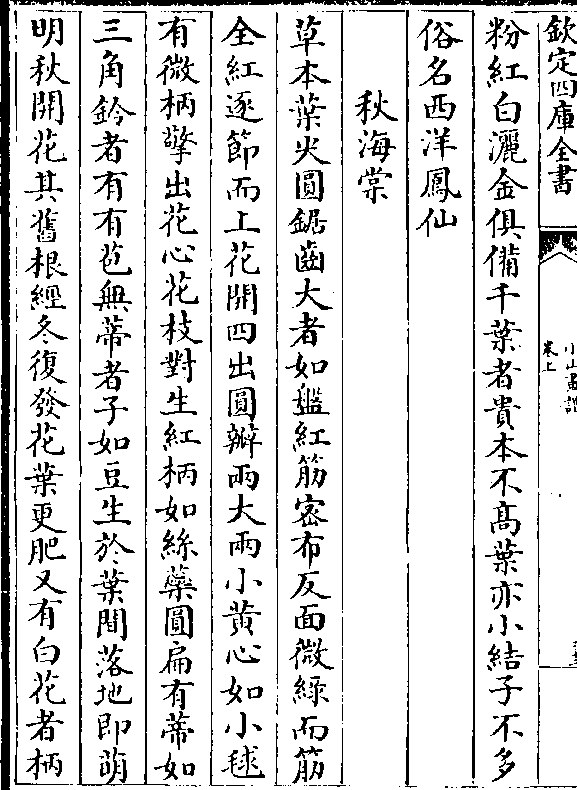 欽定四庫全書
小山畫譜
卷上
粉紅白灑金俱備千葉者貴本不髙葉亦小結子不多
俗名西洋鳳仙
秋海棠
草本葉火圓鋸齒大者如盤紅筋密布反面微綠而筋
全紅逐節而上花開四出圓瓣兩大兩小黃心如小毬
有微柄擎出花心花枝對生紅柄如絲蘂圓扁有蒂如
三角鈴者有有苞無蒂者子如豆生於葉間落地即萌
明秋開花其舊根經冬復發花葉更肥又有白花者柄